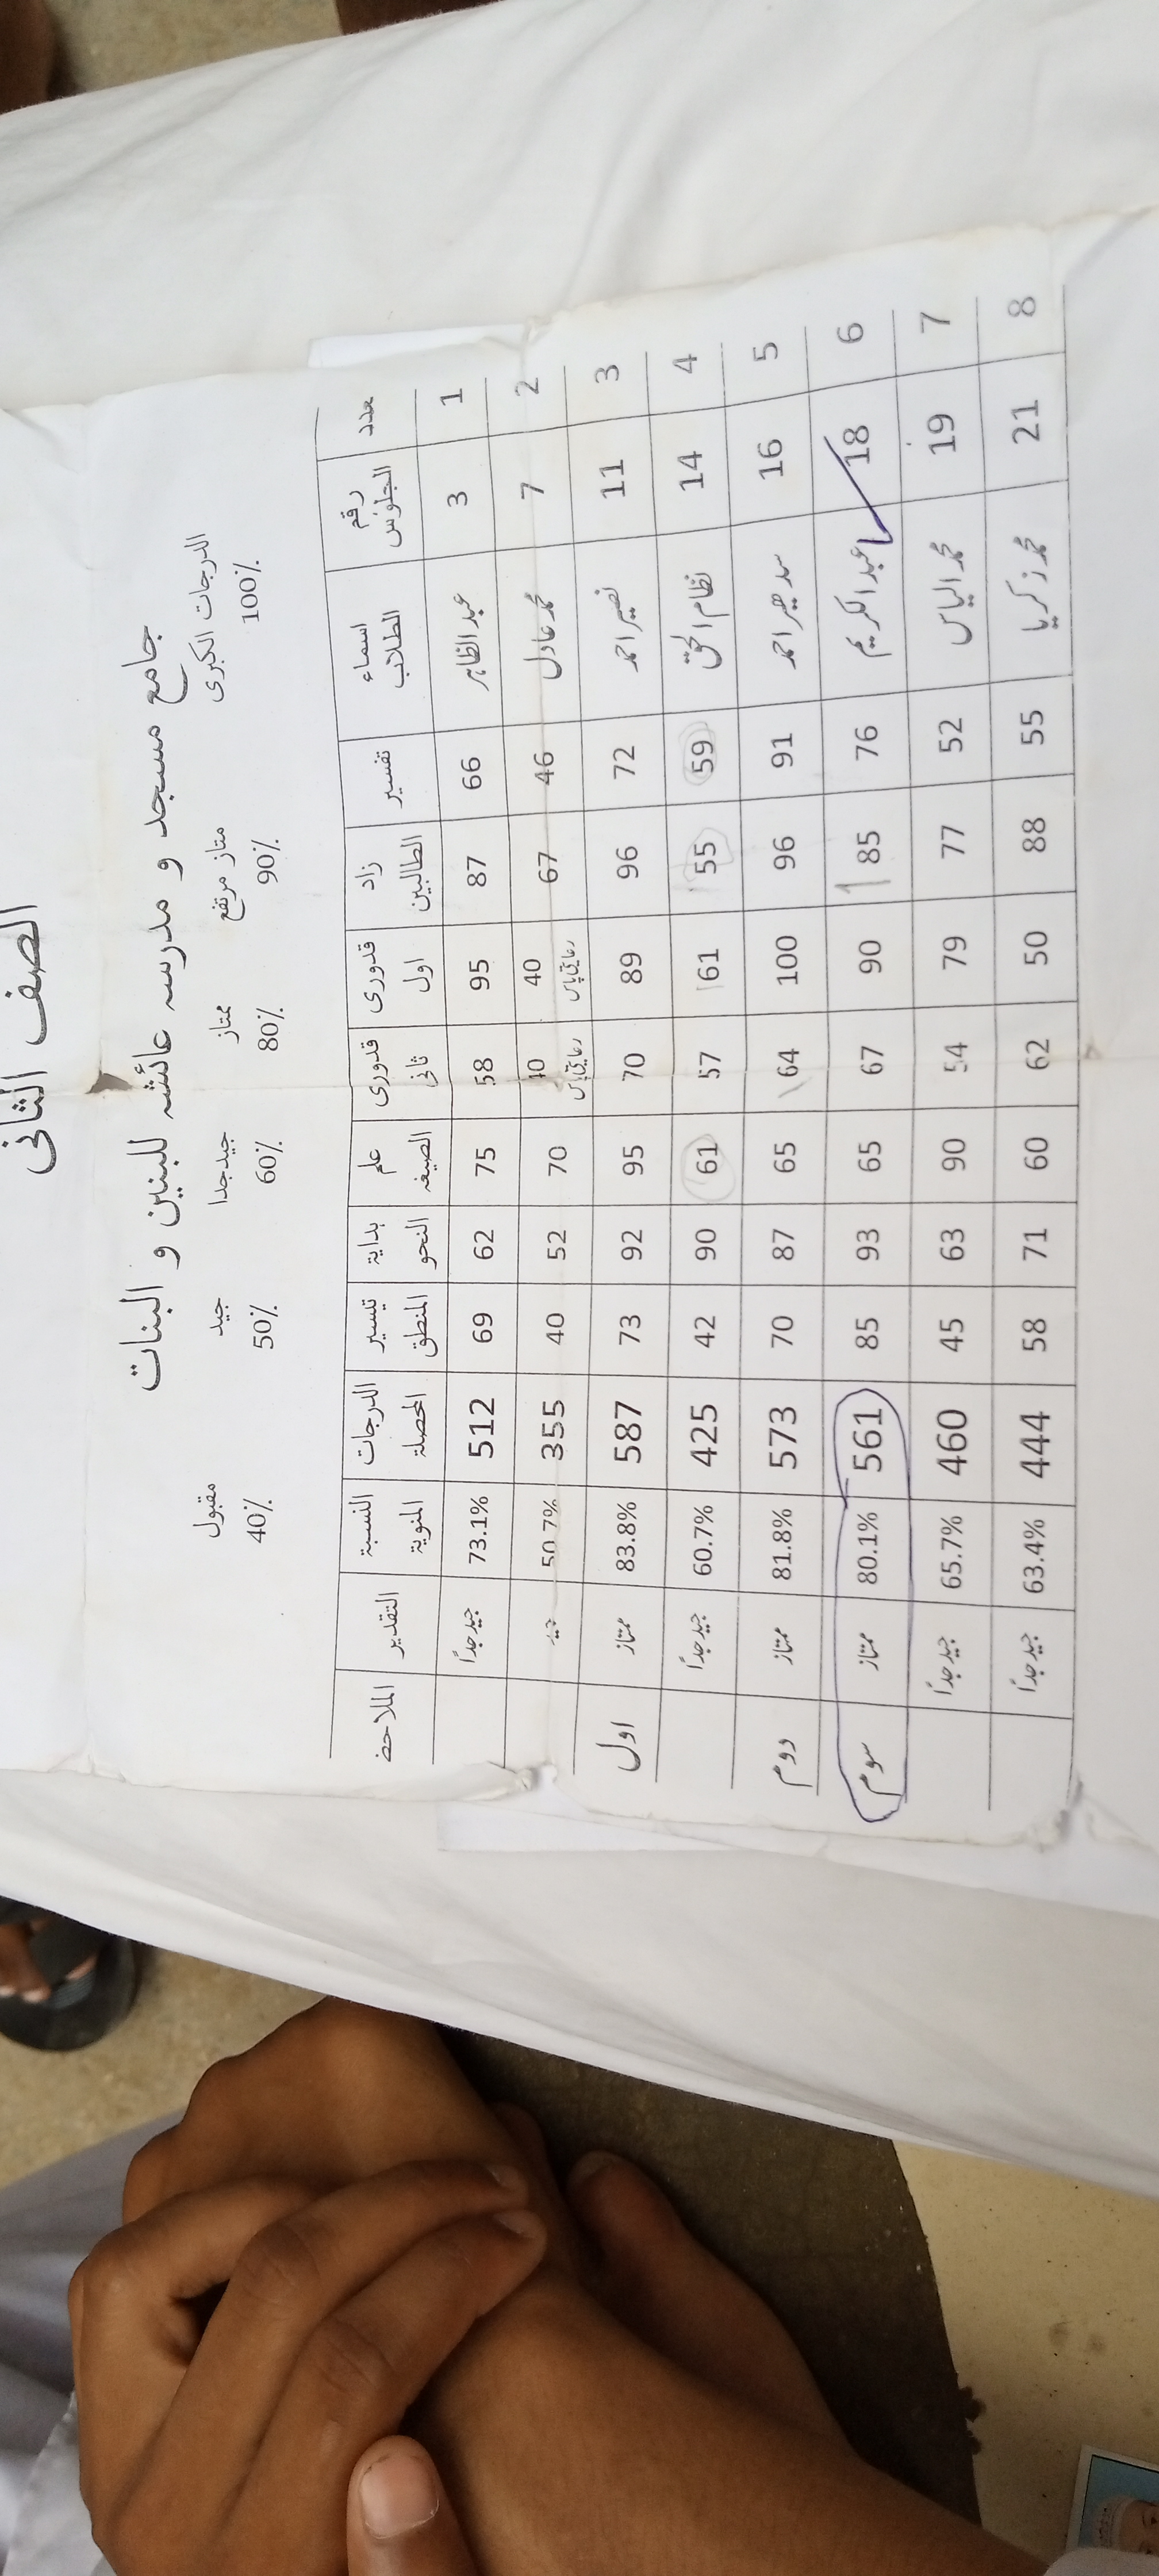 الصف الثانى
جامع مسجد و مدرسه عائشه للبنين و البنات
الدرجات الكبرى ممتاز مرتفع ممتاز جيدجدا جيد مقبول
100% 90% 80% 60% 50% 40%
عدد رقم الجلوس اسماء الطلاب تفسير زاد الطالبين قدورى اول قدورى ثانى علم الصيغه بداية النحو تيسير المنطق الدرجات المحصلة النسبة المئوية التقدير الملاحض
1 3 عبد الظاہر 66 87 95 58 75 62 69 512 73.1% جید جدًا
2 7 محمد عادل 46 67 40 رعایتی پاس 40 رعایتی پاس 70 52 40 355 50.7% جید
3 11 نصیر احمد 72 96 89 70 95 92 73 587 83.8% ممتاز اول
4 14 نظام الحق 59 55 61 57 61 90 42 425 60.7% جید جدًا
5 16 احمد 91 96 100 64 65 87 70 573 81.8% ممتاز دوم
6 18 عبد الکریم 76 85 90 67 65 93 85 561 80.1% ممتاز سوم
7 19 محمد الیاس 52 77 79 54 90 63 45 460 65.7% جید جدًا
8 21 محمد زکریا 55 88 50 62 60 71 58 444 63.4% جید جدًا